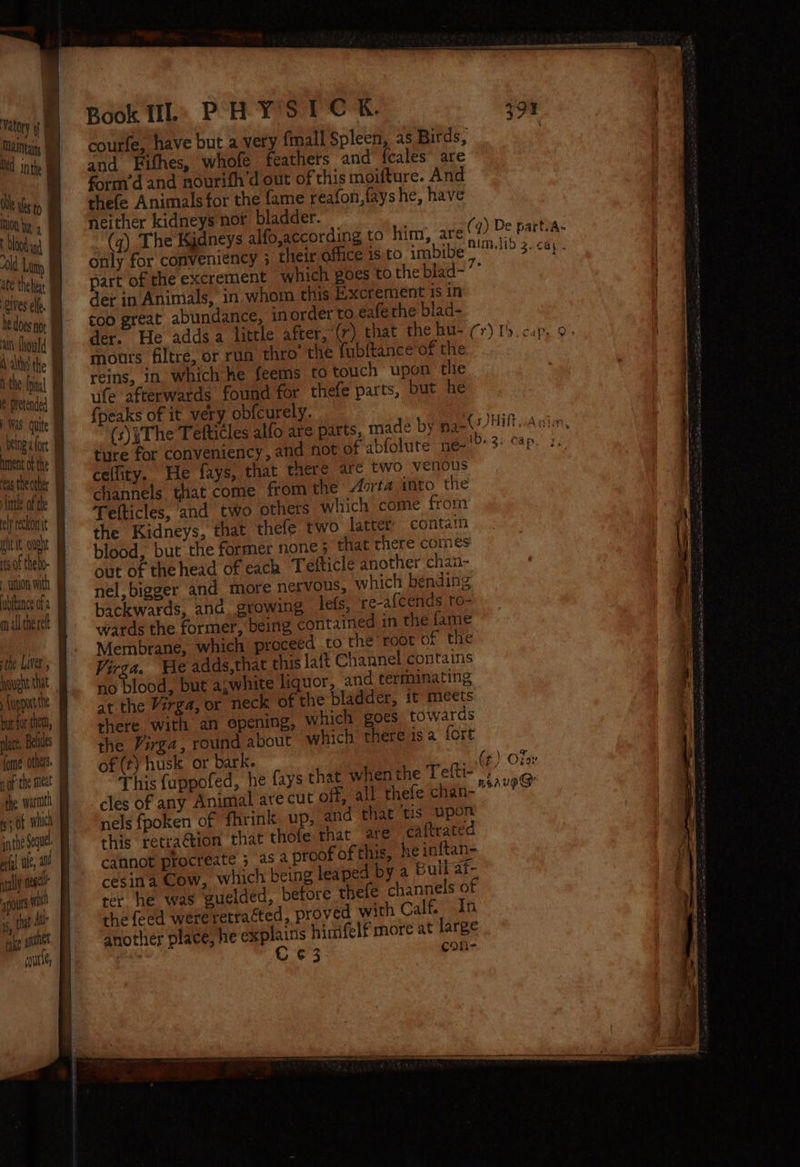 Book III. PHYSICK. 391
courſe, have but a very ſmall Spleen, as Birds,
and Fiſhes, whoſe feathers and ſcales are
form'd and nouriſh'd out of this moiſture. And
theſe Animals for the ſame reaſon, ſays he, have
neither kidneys nor bladder.
(q) The Kidneys alſo, according to him, are (q) De part. A-
only for conveniency ; their office is to imbibe nim. lib 3. cap.
part of the excrement which goes to the blad- 7.
der in Animals, in whom this Excrement is in
too great abundance, in order to eaſe the blad-
der. He adds a little after, (r) that the hu- (r) Ib. cap. 9.
mours filtre, or run thro' the ſubſtance of the
reins, in which he ſeems to touch upon the
uſe afterwards found for theſe parts, but he
ſpeaks of it very obſcurely.
(s) The Teſticles alſo are parts, made by na- (s) Hiſt. Anim.
ture for conveniency, and not of abſolute ne- lib. 3. cap. 1.
ceſſity. He ſays, that there are two venous
channels that come from the Aorta into the
Teſticles, and two others which come from
the Kidneys, that theſe two latter contain
blood, but the former none ; that there comes
out of the head of each Teſticle another chan-
nel, bigger and more nervous, which bending
backwards, and growing leſs, re-aſcends to-
wards the former, being contained in the ſame
Membrane, which proceed to the root of the
Virga. He adds, that this laſt Channel contains
no blood, but a white liquor, and terminating
at the Virga, or neck of the bladder, it meets
there with an opening, which goes towards
the Virga, round about which there is a ſort
of (t) husk or bark.
This ſuppoſed, he ſays that when the Teſti-
cles of any Animal are cut off, all theſe chan-
nels ſpoken of ſhrink up, and that 'tis upon
this retraction that thoſe that are caſtrated
cannot procreate ; as a proof of this, he inſtan-
ces in a Cow, which being leaped by a Bull af-
ter he was guelded, before theſe channels of
the ſeed were retracted, proved with Calf. In
another place, he explains himſelf more at large
C c 3 con-